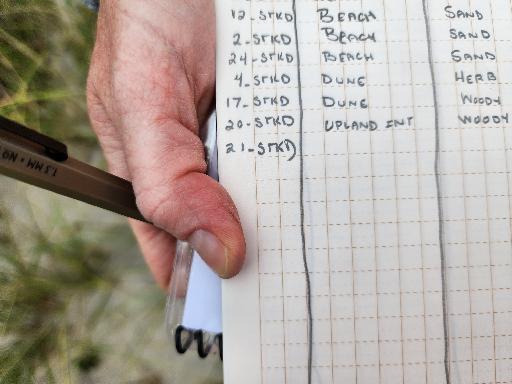 12-STKD BEACH SAND
2-STKD BEACH SAND
24-STKD BEACH SAND
4-STKD DUNE HERB
17-STKD DUNE WOODY
20-STKD UPLAND INT WOODY
21-STKD
1.3 MM • NO